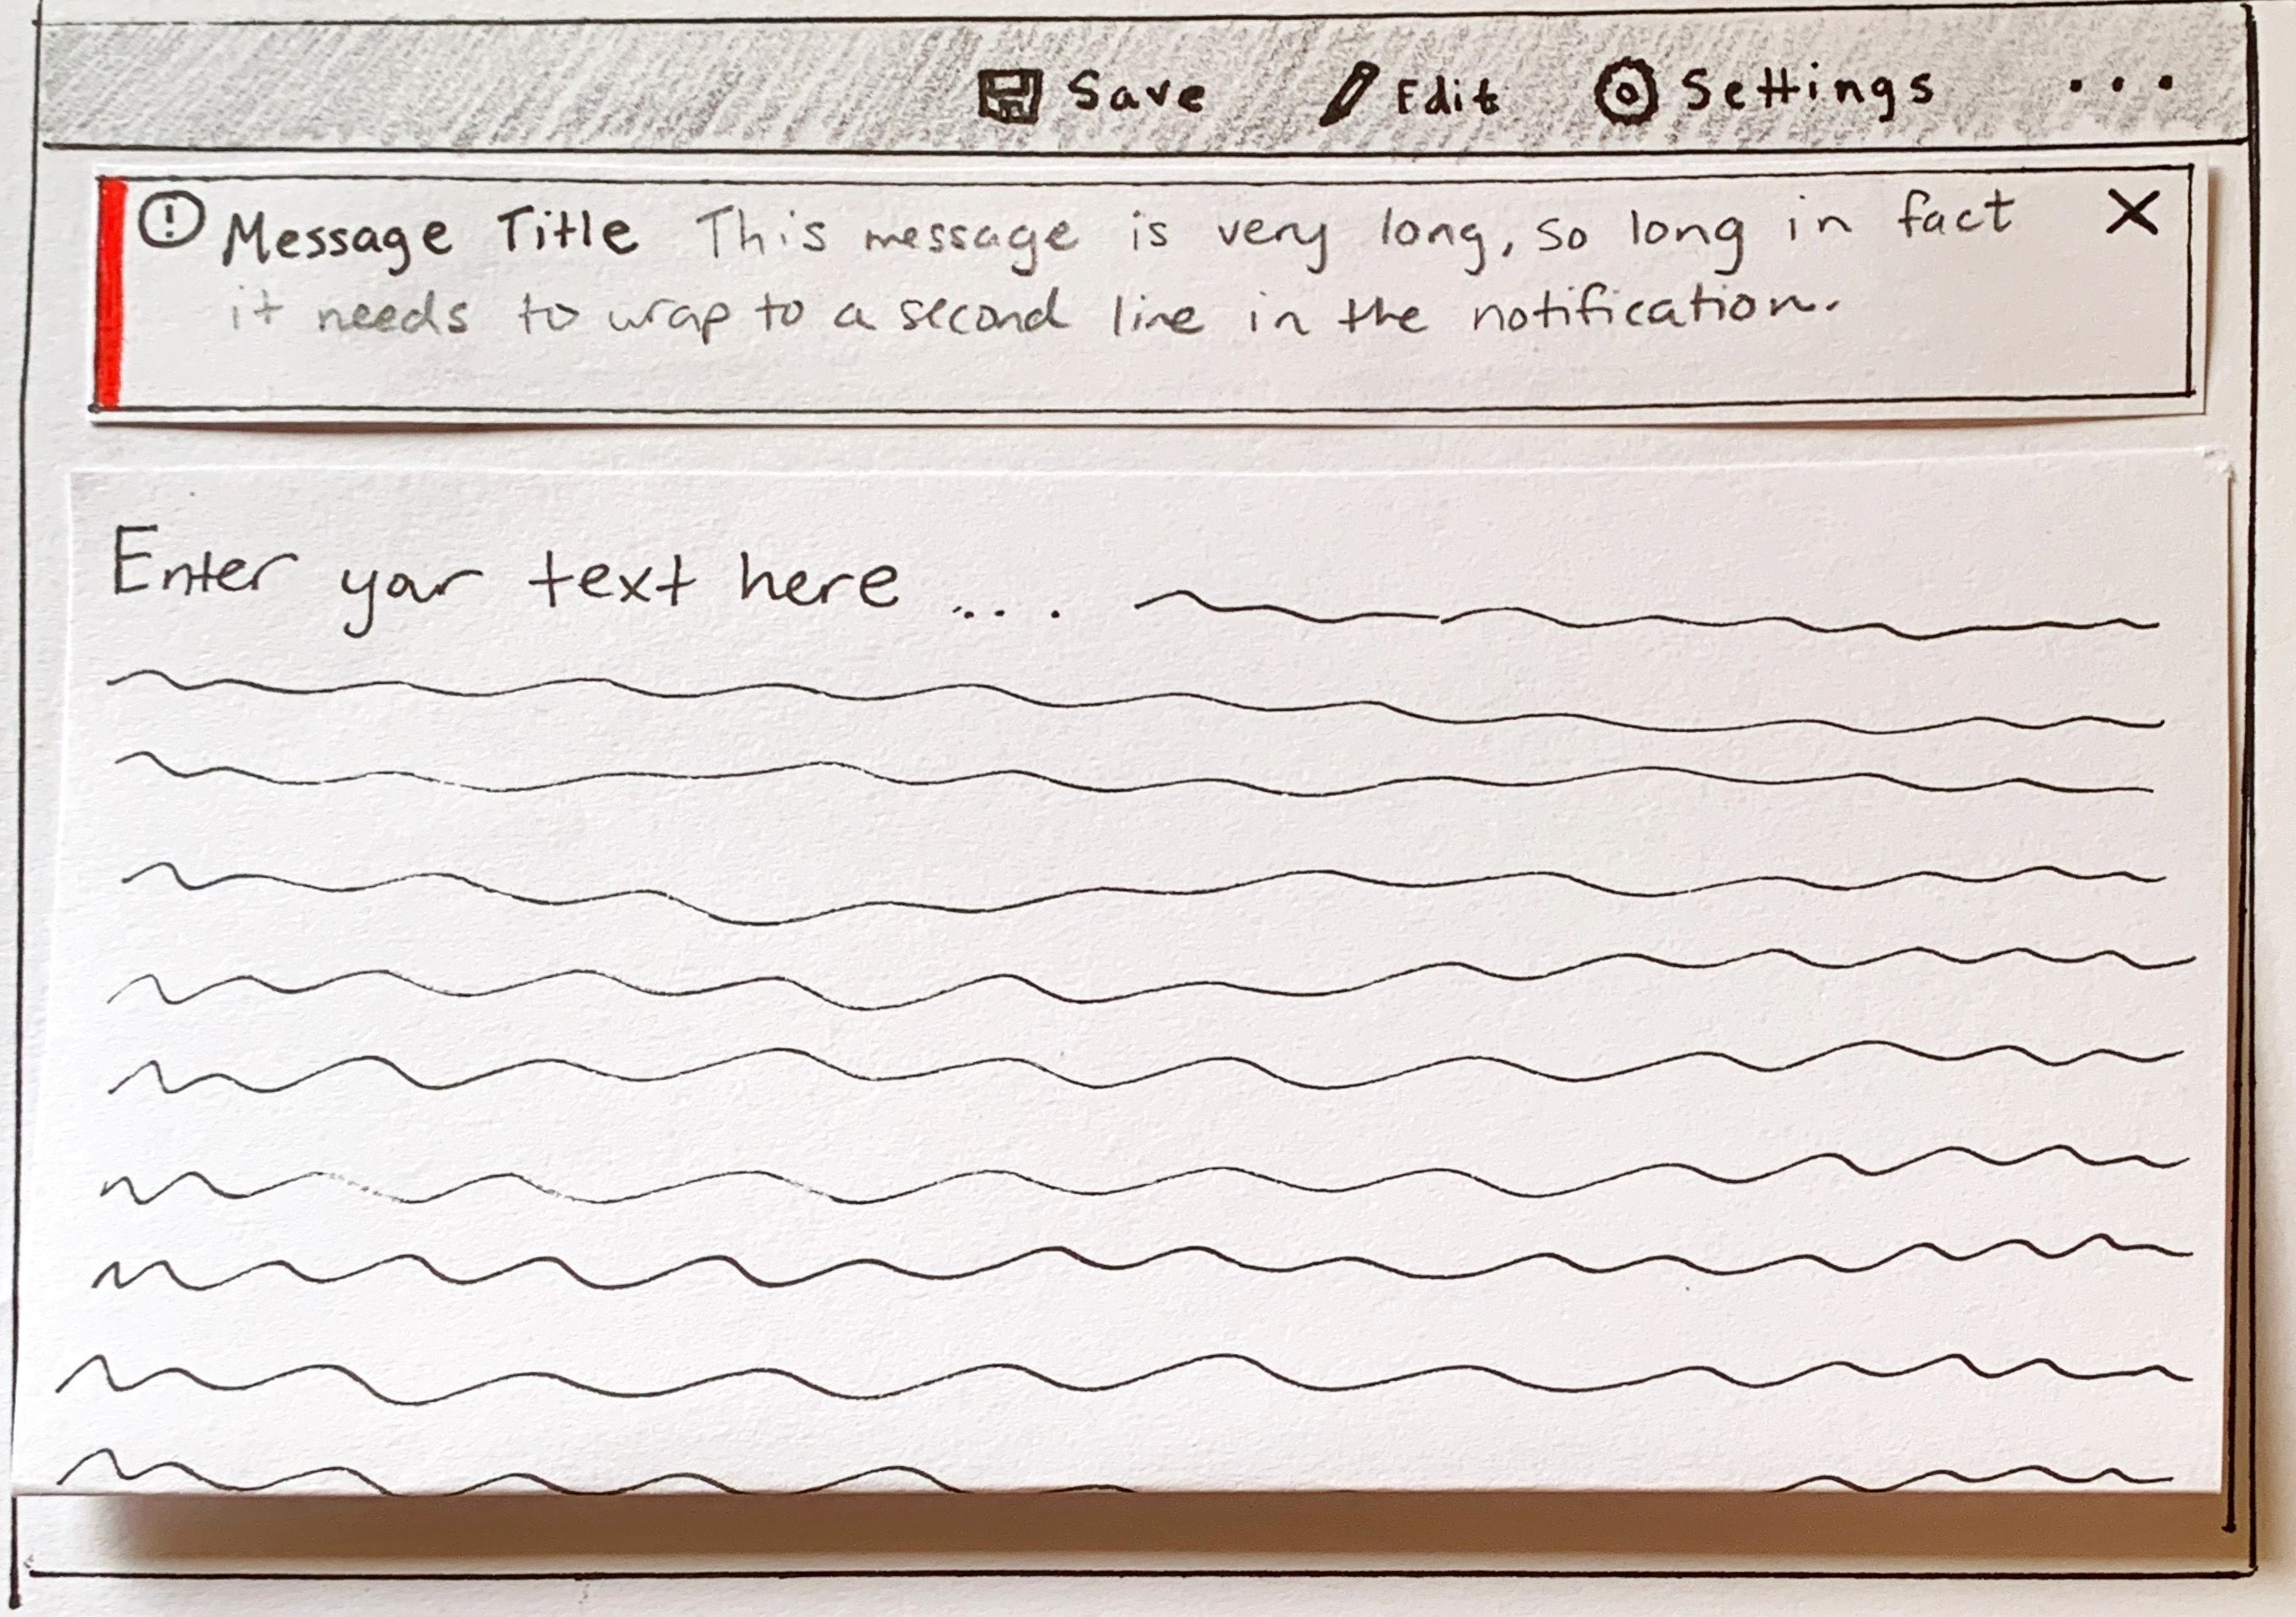 Save Edit Settings ...
Message Title This message is very long, so long in fact
it needs to wrap to a second line in the notification.
Enter your text here ...